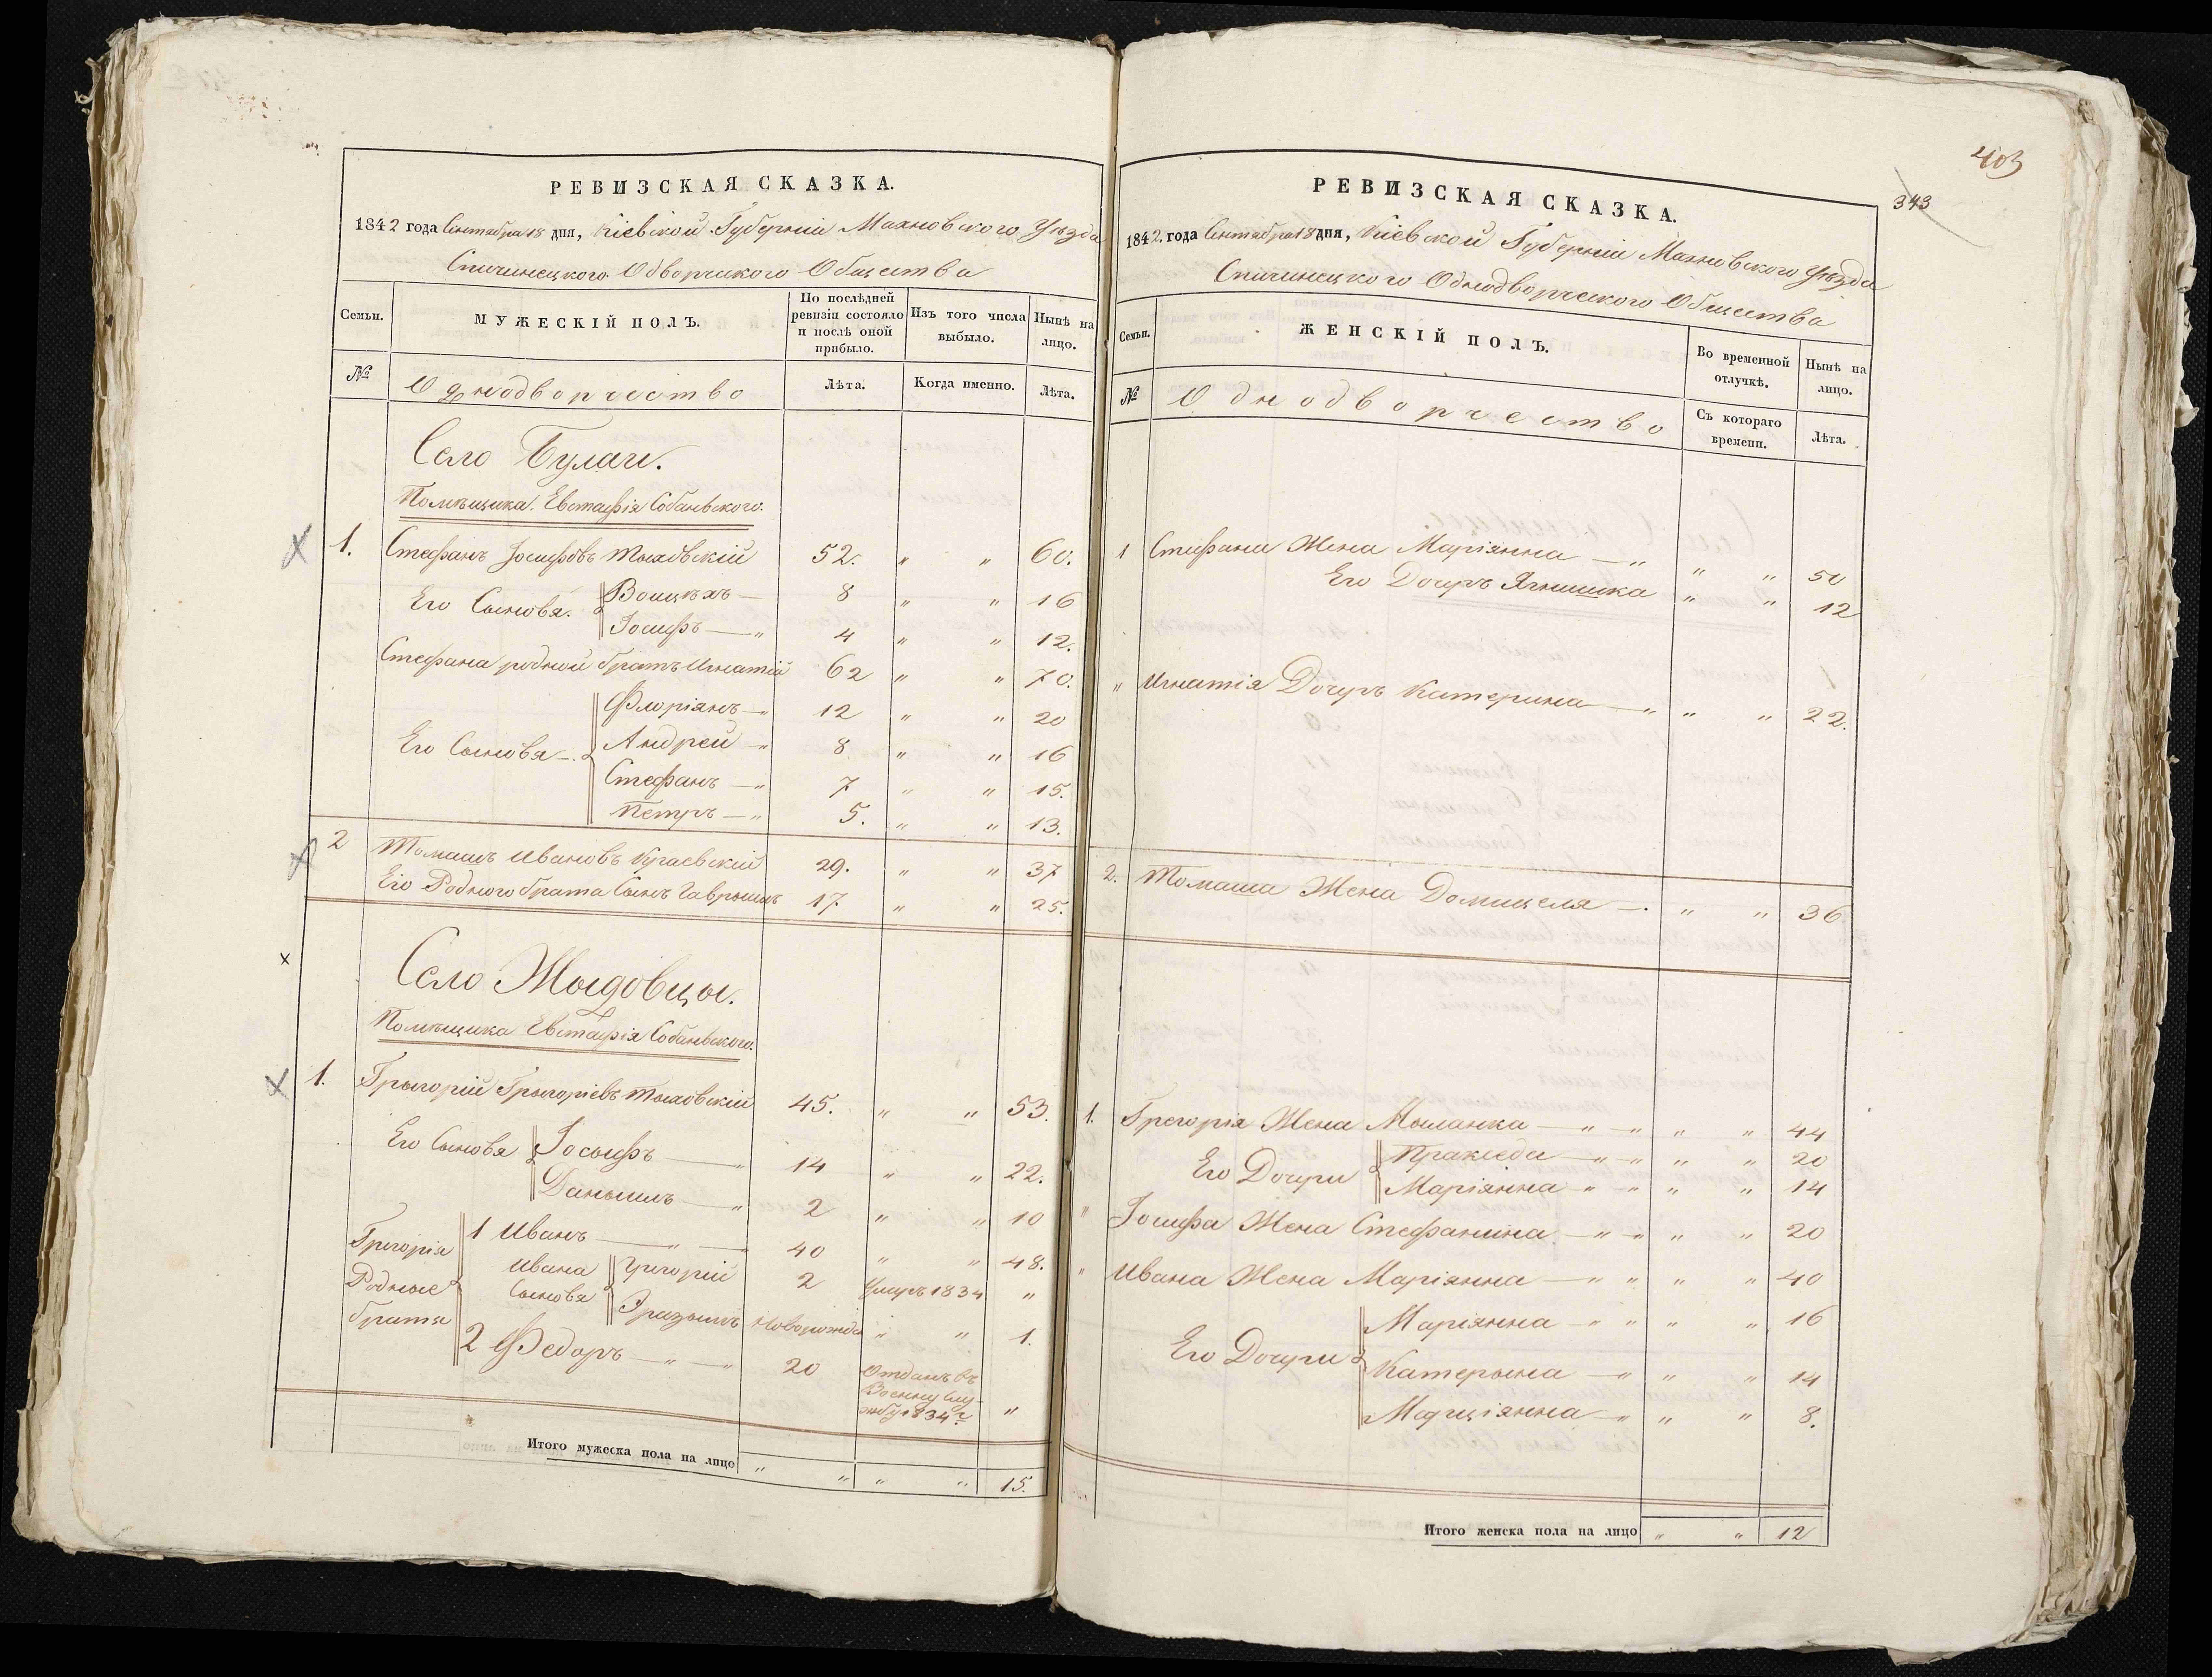 РЕВИЗСКАЯ СКАЗКА.
1842 года Сентября 18 дня, Кіевской Губерніи Махновского Уезда
Спичинецкого Одворчикого Общества
Семьи. МУЖЕСКІЙ ПОЛЪ. По послѣдней ревизіи состояло и послѣ оной прибыло. Изъ того числа выбыло. Нынѣ на лицо.
№ Однодворчество Лѣта. Когда именно. Лѣта.
Село Булаи.
Помѣщика Евстафія Собанского.
1. Стефанъ Іосифовъ 52. " " 60.
Его Сыновя. Воицѣхъ — 8 " " 16
Іосифъ — " 4 " " 12.
Стефана родной братъ Игнатій 62 " " 70.
Флоріянъ — " 12 " " 20
Его Сыновя —. Андрей — " 8 " " 16
Стефанъ — " 7 " " 15.
Петръ — " 5. " " 13.
2 Томашъ Ивановъ 29. " " 37
Его Родного брата Сынъ Гаврыилъ 17 " " 25.
Село Жыдовцы.
Помѣщика Евстафія Собанского.
1. Грыгорій Грыгоріевъ 45. " " 53.
Его Сыновя Іосыфъ — " 14 " " 22.
Даныилъ — " 2 " " 10
Грегорія Родные братя 1 Иванъ — " — " 40 " " 48.
Ивана Сыновя Григорій 2 Умръ 1834 "
Эразымъ Новорожде " " 1.
2 Федоръ — " — " 20 Отданъ въ Военну Службу 1834 г "
Итого мужеска пола на лицо " " " " 15.
403
343
РЕВИЗСКАЯ СКАЗКА.
1842. года Сентября 18 дня, Кіевской Губерніи Махновского Уѣзда
Спичинецкого Однодворческого Общества
Семьи. ЖЕНСКІЙ ПОЛЪ. Во временной отлучкѣ. Нынѣ на лицо.
№ Однодворчество Съ котораго времени. Лѣта.
1 Стефана Жена Маріянна — " " " 50
Его Дочеръ Ягнишка " " 12
" Игнатія Дочеръ Катерина — " " " 22.
2. Томаша Жена Домицеля —. " " 36
1. Грегорія Жена Мыланка — " — " " " 44
Его Дочери Пракседа — " — " " " 20
Маріянна — " — " " " 14
" Іосифа Жена Стефанина — " — " " " 20
" Ивана Жена Маріянна — " " " " 40
Его Дочери Маріянна — " " " " 16
Катерына — " " " 14
Марціянна — " " " 8.
Итого женска пола на лицо " " 12